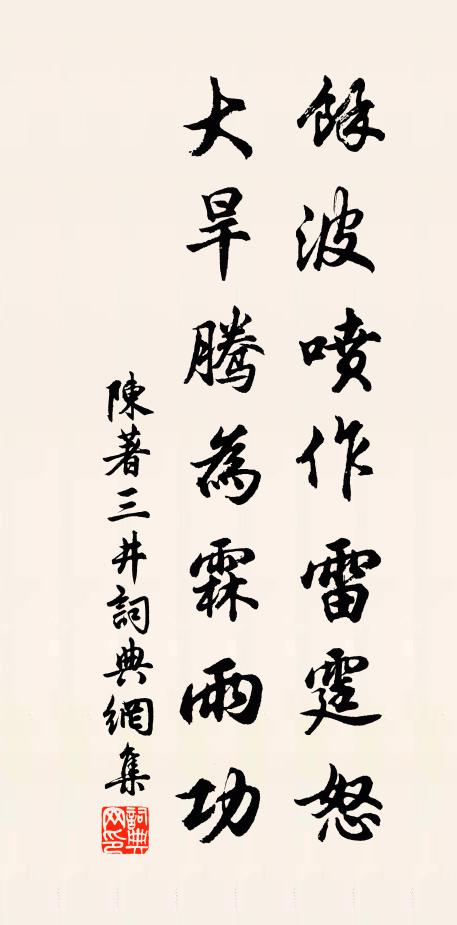 餘波噴作雷霆怒
大旱騰為霖雨功
陳著三井詞典網集
詞典網印